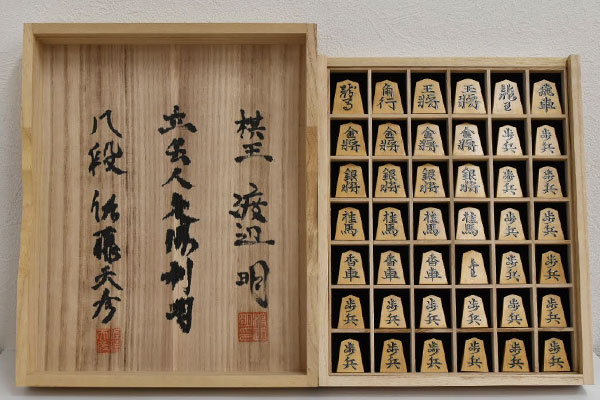 棋王 渡辺 明
立会人 久保利明
八段 佐藤天彦
龍馬 角行 王將 玉將 龍王 飛車
金將 金將 金將 金將 歩兵 歩兵
銀將 銀將 銀將 銀將 歩兵 歩兵
桂馬 桂馬 桂馬 桂馬 歩兵 歩兵
香車 香車 香車 歩兵 歩兵
歩兵 歩兵 歩兵 歩兵 歩兵 歩兵
歩兵 歩兵 歩兵 歩兵 歩兵 歩兵